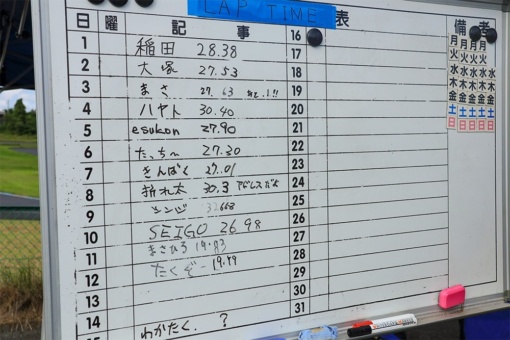 LAP TIME 表
日 曜 記 事
備 考
1 稲田 28.38
2 大塚 27.53
3 まさ 27.63
4 ハヤト 30.40
5 esukon 27.90
6 たっちー 27.20
7 きんぱく 27.01
8 折れ太 30.3 アドレスだよ
9
10 SEIGO 26.98
11 まさひろ 19.83
12 たくぞー 19.99
13
14 わかたく. ?
15
16
17
18
19
20
21
22
23
24
25
26
27
28
29
30
31
月 月 月 月
火 火 火 火
水 水 水 水 水
木 木 木 木 木
金 金 金 金 金
土 土 土 土 土
日 日 日 日 日